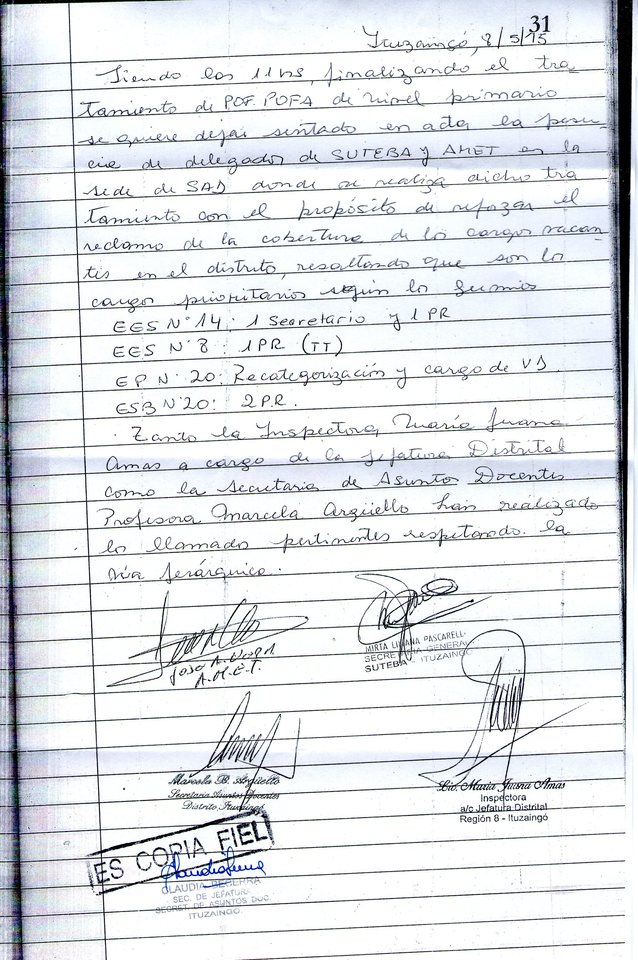 31
Ituzaingó, 8/5/15
Siendo las 11 hs, finalizando el tra-
tamiento de POF. POFA de nivel primario
se quiere dejar sentado en acta la presen-
cia de delegados de SUTEBA y AMET en la
sede de SAD donde se realiza dicho tra
tamiento con el propósito de reforzar el
reclamo de la cobertura de los cargos vacan-
tes en el distrito, resaltando que son los
cargos prioritarios según los Gremios
EES Nº 14: 1 Secretario y 1 PR
EES Nº 8: 1PR (TT)
EP Nº 20: Recategorización y cargo de VD.
ESB Nº 20: 2 PR.
Tanto la Inspectora María Juana
Amas a cargo de la Jefatura Distrital
como la Secretaria de Asuntos Docentes
Profesora Marcela Argüello han realizado
los llamados pertinentes respetando la
vía jerárquica.
A.M.E.T.
MIRTA LILIANA PASCARELLI
SECRETARIA GENERAL
SUTEBA - ITUZAINGO
Marcela B. Argüello
Secretaria Asuntos Docentes
Distrito Ituzaingó
Lic. María Juana Amas
Inspectora
a/c Jefatura Distrital
Región 8 - Ituzaingó
ES COPIA FIEL
CLAUDIA BECERRA
SEC. DE JEFATURA
SECRET. DE ASUNTOS DOC.
ITUZAINGO